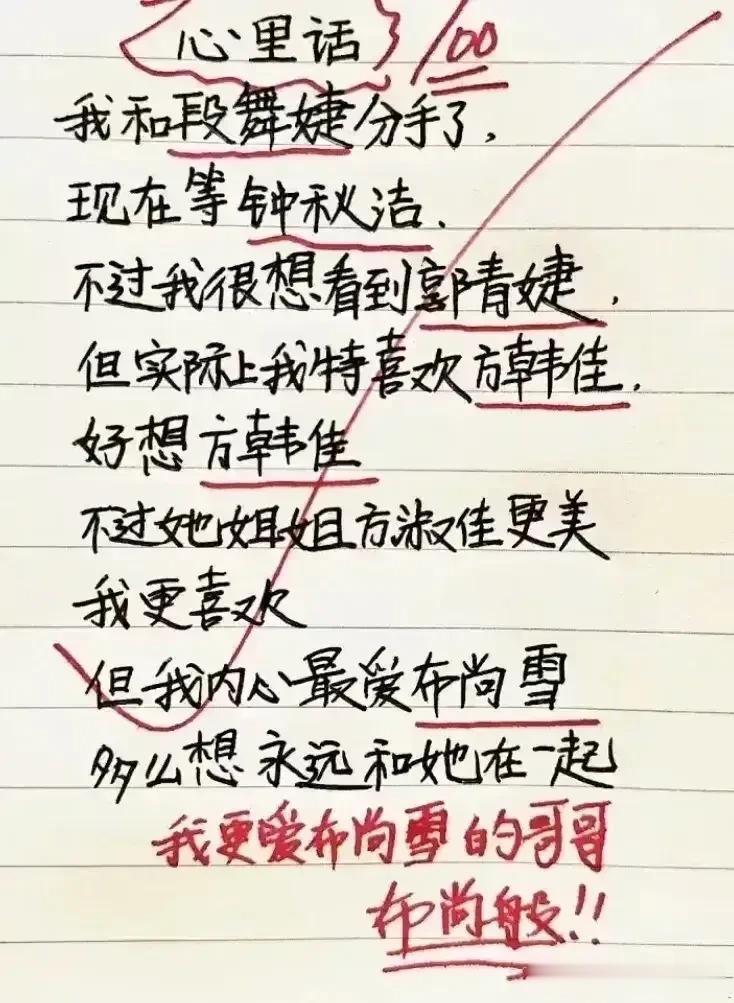 心里话 100
我和段舞婕分手了,
现在等钟秋洁.
不过我很想看到郭清婕,
但实际上我特喜欢方韩佳,
好想方韩佳
不过她姐姐方淑佳更美
我更喜欢
但我内心最爱布尚雪
多么想永远和她在一起
我更爱布尚雪的哥哥
布尚般!!